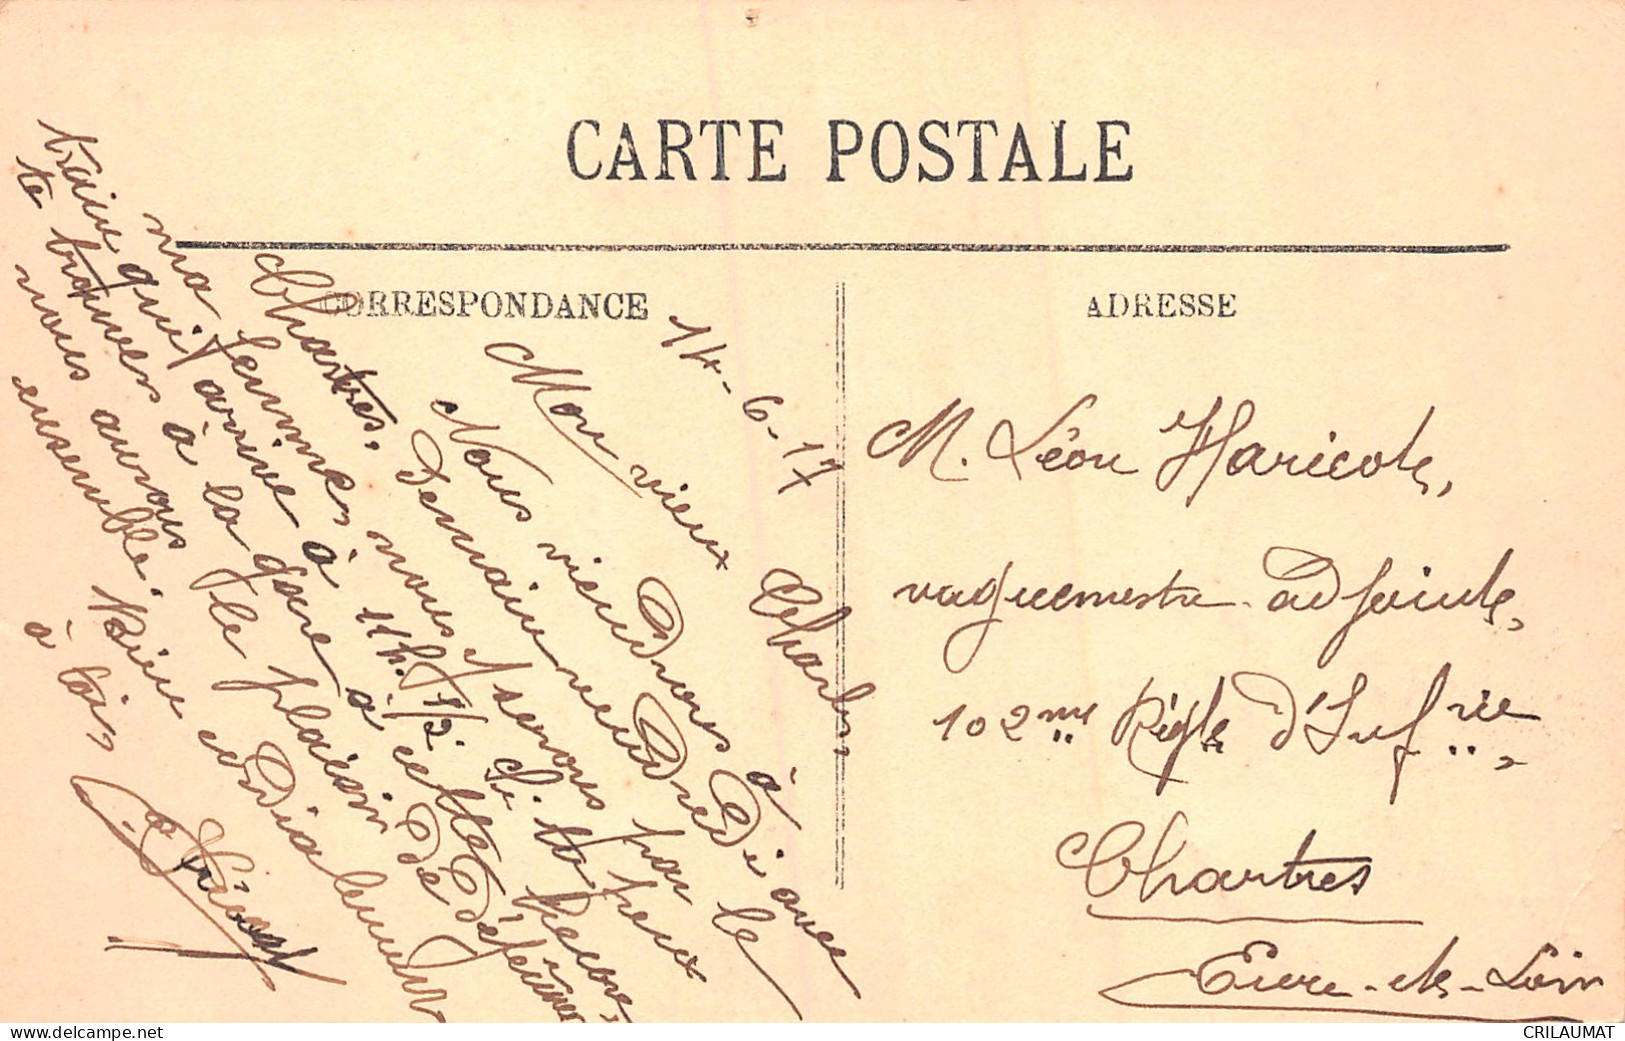 CARTE POSTALE
CORRESPONDANCE
ADRESSE
14-6-17
Mon vieux Charles
Nous viendrons à
Chartres, Demain vendredi avec
ma femme, nous serons par le
train qui arrive à 11h. 1/2. si tu peux
te trouver à la gare à cette heure,
nous aurons le plaisir de déjeuner
ensemble. Bien cordialement
à toi
M. Léon Haricot,
vaguemestre adjoint,
102me Régt d'Infrie,
Chartres
Eure-et-Loir
CRILAUMAT